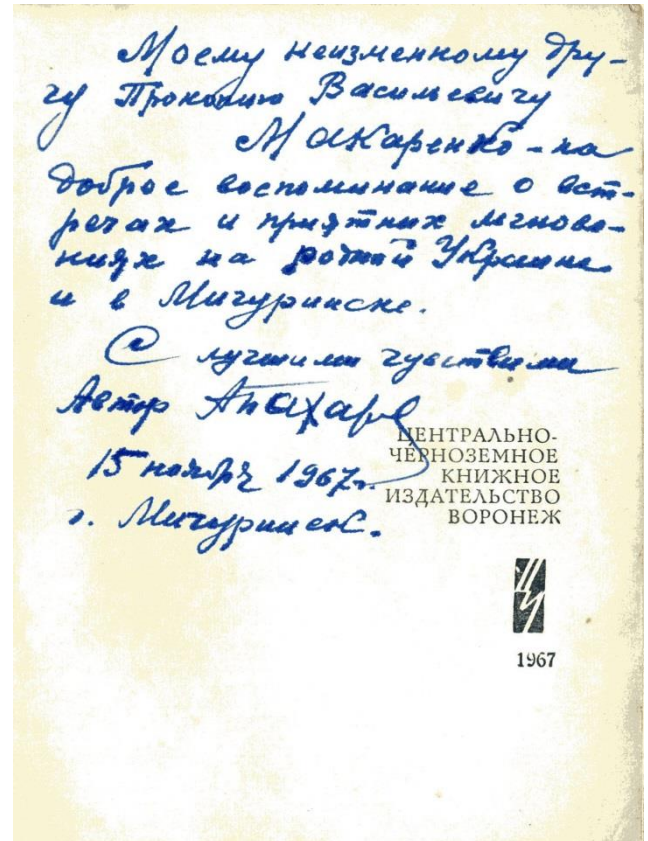 Моему неизменному дру-
гу Прокопию Васильевичу
Макаренко - на
доброе воспоминание о вст-
речах и приятных мгнове-
ниях на родной Украине
и в Мичуринске.
С лучшими чувствами
Автор
15 ноября 1967 г.
г. Мичуринск.
ЦЕНТРАЛЬНО-
ЧЕРНОЗЕМНОЕ
КНИЖНОЕ
ИЗДАТЕЛЬСТВО
ВОРОНЕЖ
1967